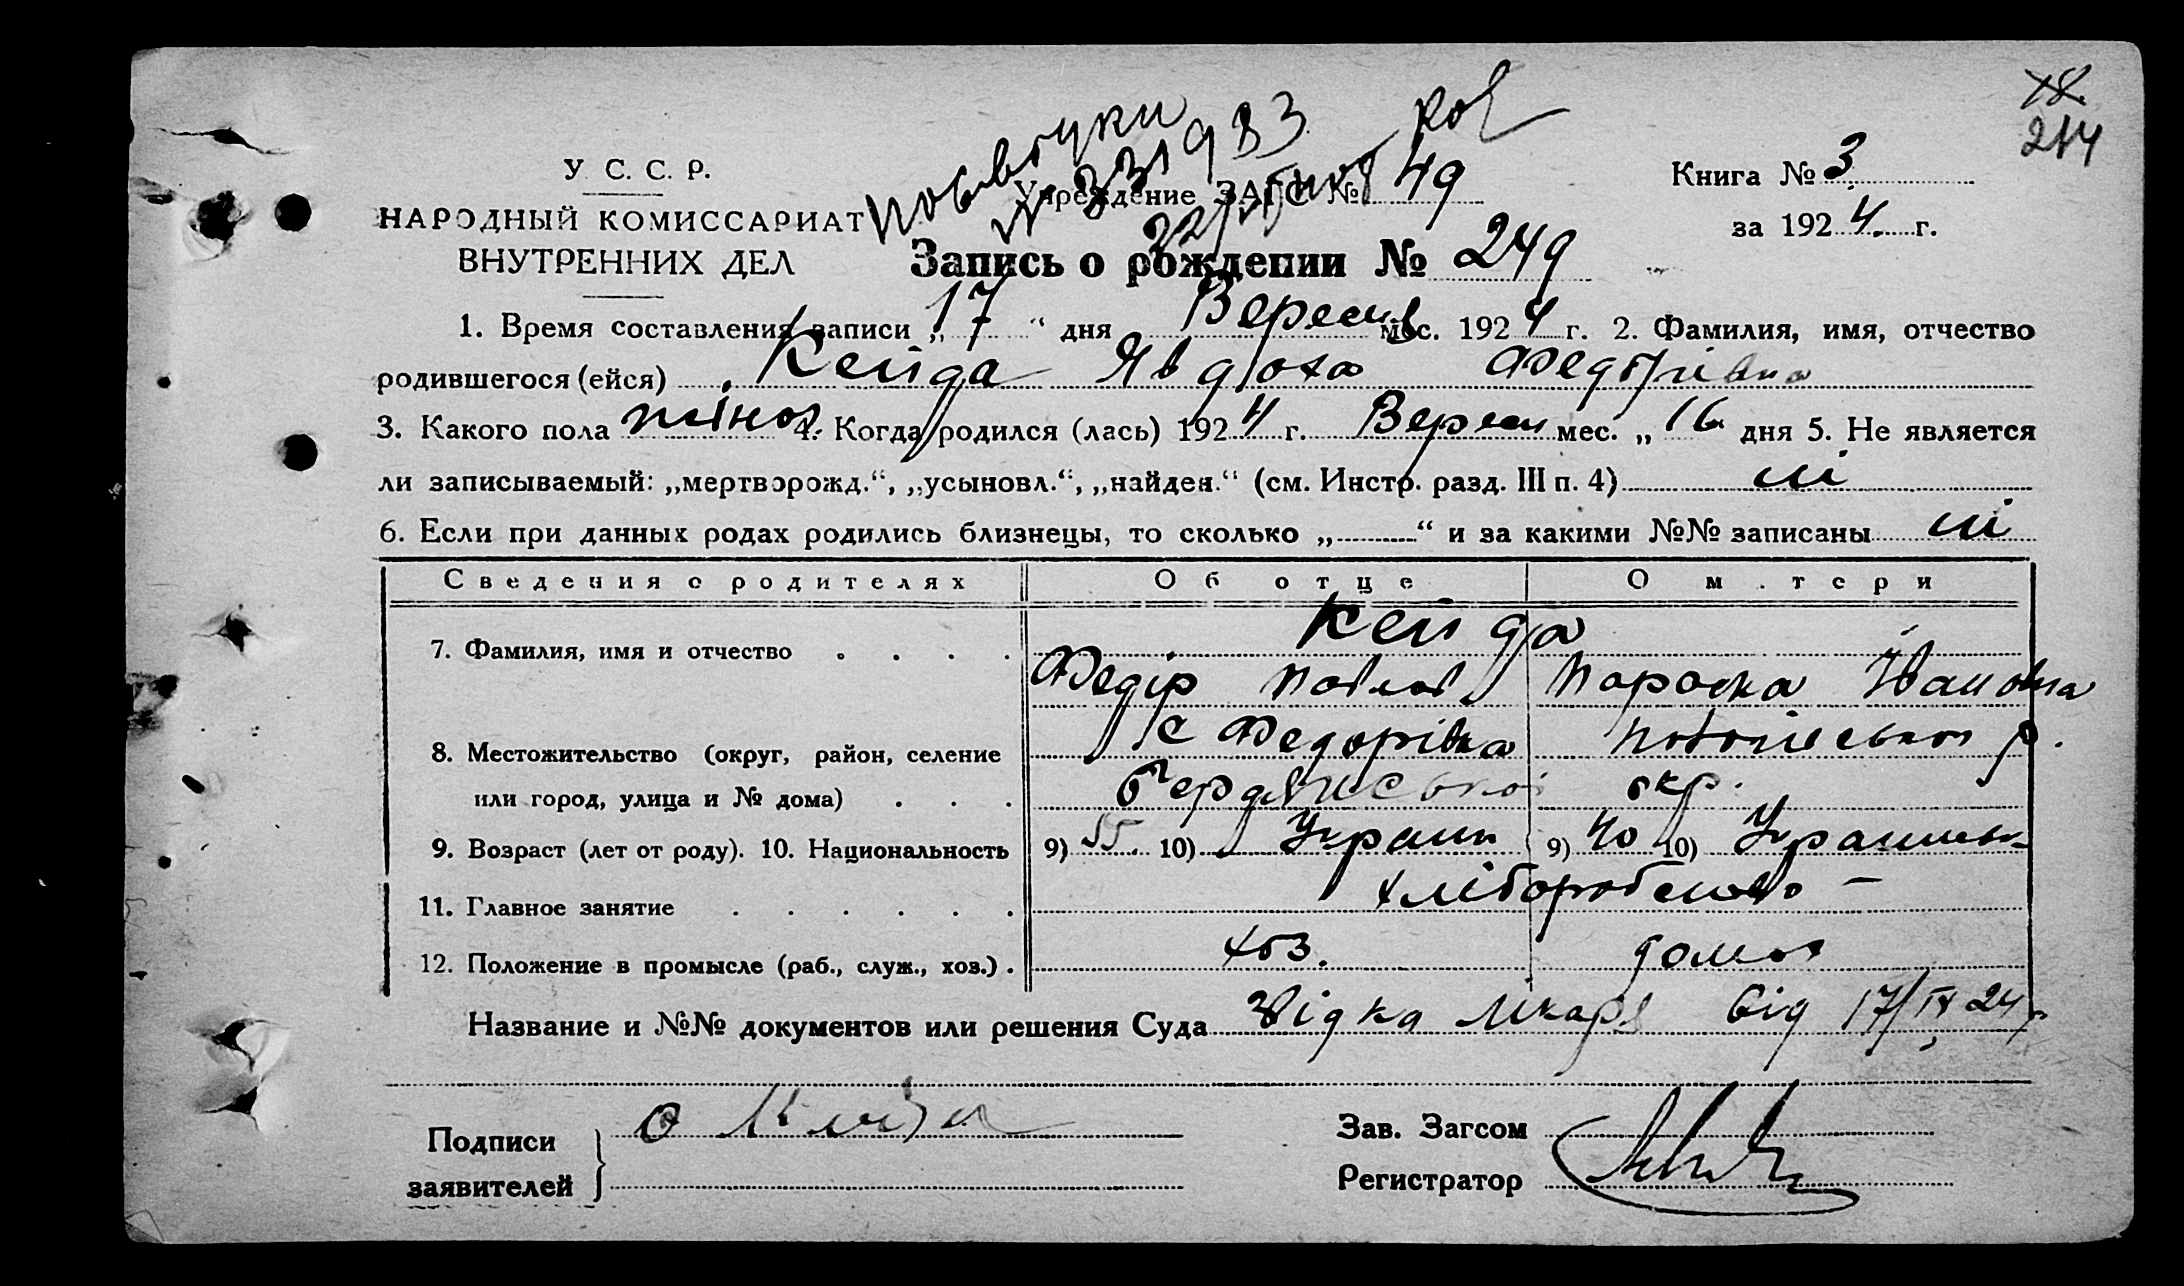 78.
214
У. С. С. Р.
НАРОДНЫЙ КОМИССАРИАТ
ВНУТРЕННИХ ДЕЛ
Учреждение ЗАГС № 49
Книга № 3
за 1924 г.
Запись о рождении № 249
1. Время составления записи „ 17 “ дня Вересня мес. 1924 г. 2. Фамилия, имя, отчество
родившегося (ейся) Кейда Явдоха Федорівна
3. Какого пола жіноч 4. Когда родился (лась) 1924 г. Вересн мес. „ 16 дня 5. Не является
ли записываемый: „мертворожд.“, „усыновл.“, „найден.“ (см. Инстр. разд. III п. 4) ні
6. Если при данных родах родились близнецы, то сколько „ “ и за какими №№ записаны ні
Сведения о родителях Об отце О м.тери
7. Фамилия, имя и отчество Кейда
Федір Павлов Параска Йванова
8. Местожительство (округ, район, селение с Федорівка
или город, улица и № дома) Бердянської окр.
9. Возраст (лет от роду). 10. Национальность 9) 55 10) Украин 9) 40 10)
11. Главное занятие хліборобство —
12. Положение в промысле (раб., служ., хоз.) хоз. дома
Название и №№ документов или решения Суда від 17/IX 24 р
Подписи
заявителей
Зав. Загсом
Регистратор